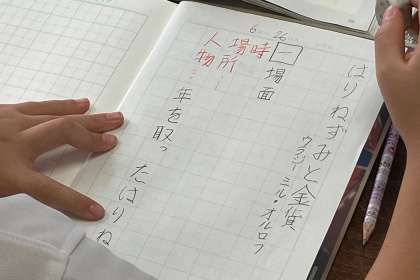 はりねずみと金貨
ウラジーミル・オルロフ
6 26
一 場面
時
場所…
人物…年を取ったはりね